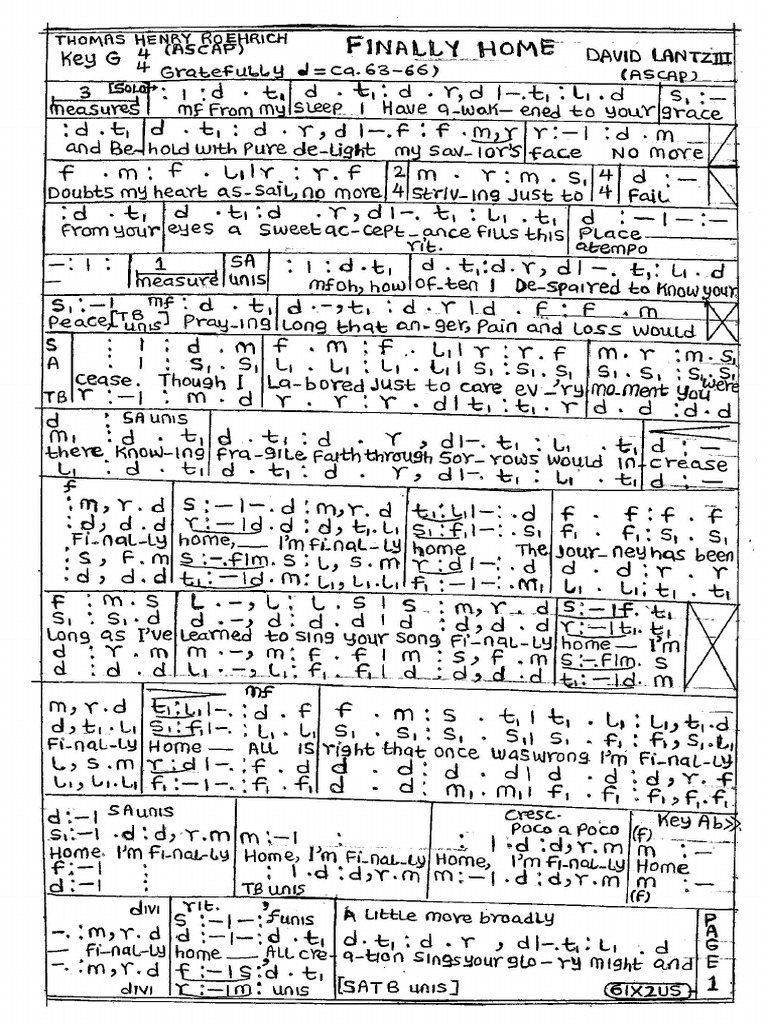 THOMAS HENRY ROEHRICH (ASCAP)
FINALLY HOME
DAVID LANTZ III (ASCAP)
Key G 4 4 Gratefully d=ca. 63-66)
3 measures [SOLO] : l : d . t₁ | d . t₁ : d . r, d | -. t₁ : L₁ . d | S₁ : -
mf From my sleep I Have a-wak-ened to your grace
: d . t₁ | d . t₁ : d . r, d | -. f : f . m, r | r : - l : d . m
and Be-hold with Pure de-light my Sav-ior's face No more
f . m : f . L₁ | r . : r . f | 2 4 m . r : m . S₁ | 4 4 d : -
Doubts my heart as-sail, no more striv-ing just to fail
: d . t₁ | d . t₁ : d . r, d | -. t₁ : L₁ . t₁ | d : - | - : -
from your eyes a sweet ac-cept-ance fills this Place
rit. atempo
- : l : | 1 measure | SA unis : l : d . t₁ | d . t₁ : d . r, d | -. t₁ : L₁ . d
mf oh, how of-ten I De-spaired to know your
S₁ : - l mf : d . t₁ | d . -, t₁ : d . r | d . f : f . m
Peace, [TB unis] Pray-ing long that an-ger, Pain and Loss would
S : l : d . m | f . m : f . L₁ | r : r . f | m . r : m . S₁
A : l : S₁ . S₁ | L₁ . L₁ : L₁ . L₁ | S₁ : S₁ . S₁ | S₁ . S₁ : S₁ . S₁
cease. Though I La-bored Just to care ev-'ry mo-ment you were
TB r : - l : m . d | r . r : r . d | t₁ : t₁ . r | d . d : d . d
d : SA unis
m₁ : d . t₁ | d . t₁ : d . r, d | -. t₁ : L₁ . t₁ | d : -
there, know-ing fra-gile faith through Sor-rows would in-crease
L₁ : d . t₁ | d . t₁ : d . r, d | -. t₁ : L₁ . t₁ | d : -
f
: m, r . d | S : - | - . d : m, r . d | t₁ : L₁ | - : . d | f . f : f . f
: d, d . d | r : - | d . d : d, t₁ . L₁ | S₁ : f₁ | - : . S₁ | f₁ . f₁ : S₁ . S₁
Fi-nal-ly home, I'm fi-nal-ly home The Jour-ney has been
: S, f . m | S : -. f | m . S : L, S . m | r : d | - : . d | d . d : r . r
: d, d . d | t₁ : - | d . m : L₁, L₁ . L₁ | f₁ : - | - : . M₁ | L₁ . L₁ : t₁ . t₁
f : m . S | L . -, L : L . S | S : m, r . d | S : - | f . t₁
S₁ : S₁ . d | d . -, d : d . d | d : d, d . d | r : - | t₁ . t₁
Long as I've learned to sing your song Fi-nal-ly home I'm
d : r . m | m . -, m : f . f | m : S, f . m | S : -. f | m . S
d : d . d | L₁ . -, L₁ : f . f | d : d, d . d | t₁ : - | d . m
mf
m, r . d | t₁ : L₁ | - . : d . f | f . m : S . t₁ | t₁ . L₁ : L₁, t₁ . d
d, t₁ . L₁ | S₁ : f₁ | - . : L₁ . L₁ | S₁ . S₁ : S₁ . S₁ | S₁ . f₁ : f₁, S₁ . L₁
Fi-nal-ly Home ALL IS right that once was wrong I'm Fi-nal-ly
L, S . m | r : d | - . : d . f | d . d : d . d | d . d : d, r . f
L₁, L₁ . L₁ | f₁ : - | - . : f₁ . f₁ | d . d : m₁ . m₁ | f₁ . f₁ : f₁, f₁ . f₁
d : - l SA unis cresc. Poco a Poco Key Ab»
S₁ : - l . d : d, r . m | m : - l : | . l . d : d, r . m | (f) m : -
Home. I'm fi-nal-ly Home, I'm fi-nal-ly Home, I'm fi-nal-ly Home
f : - l : | : l . d : d, r . m | m : - l . d : d, r . m | m : -
d : - l : | TB unis (f)
divi rit. , A little more broadly
- . : m, r . d | S : - | - : f unis
d : - | - : d . t₁ | d . t₁ : d . r, d | - . t₁ : L₁ . d
fi-nal-ly home ALL cre-a-tion sings your glo-ry might and
- . : m, r . d | f : - | S : d . t₁ [SATB unis]
divi r : - | m : unis
PAGE 1
61X2US